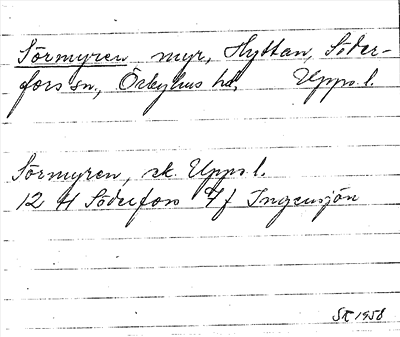 Sörmyren myr, Hyttan, Söder-
fors sn, Örbyhus hd, Upps. l.
Sörmyren, sk. Upps. l.
12 H Söderfors 4f Ingensjön
SK 1958